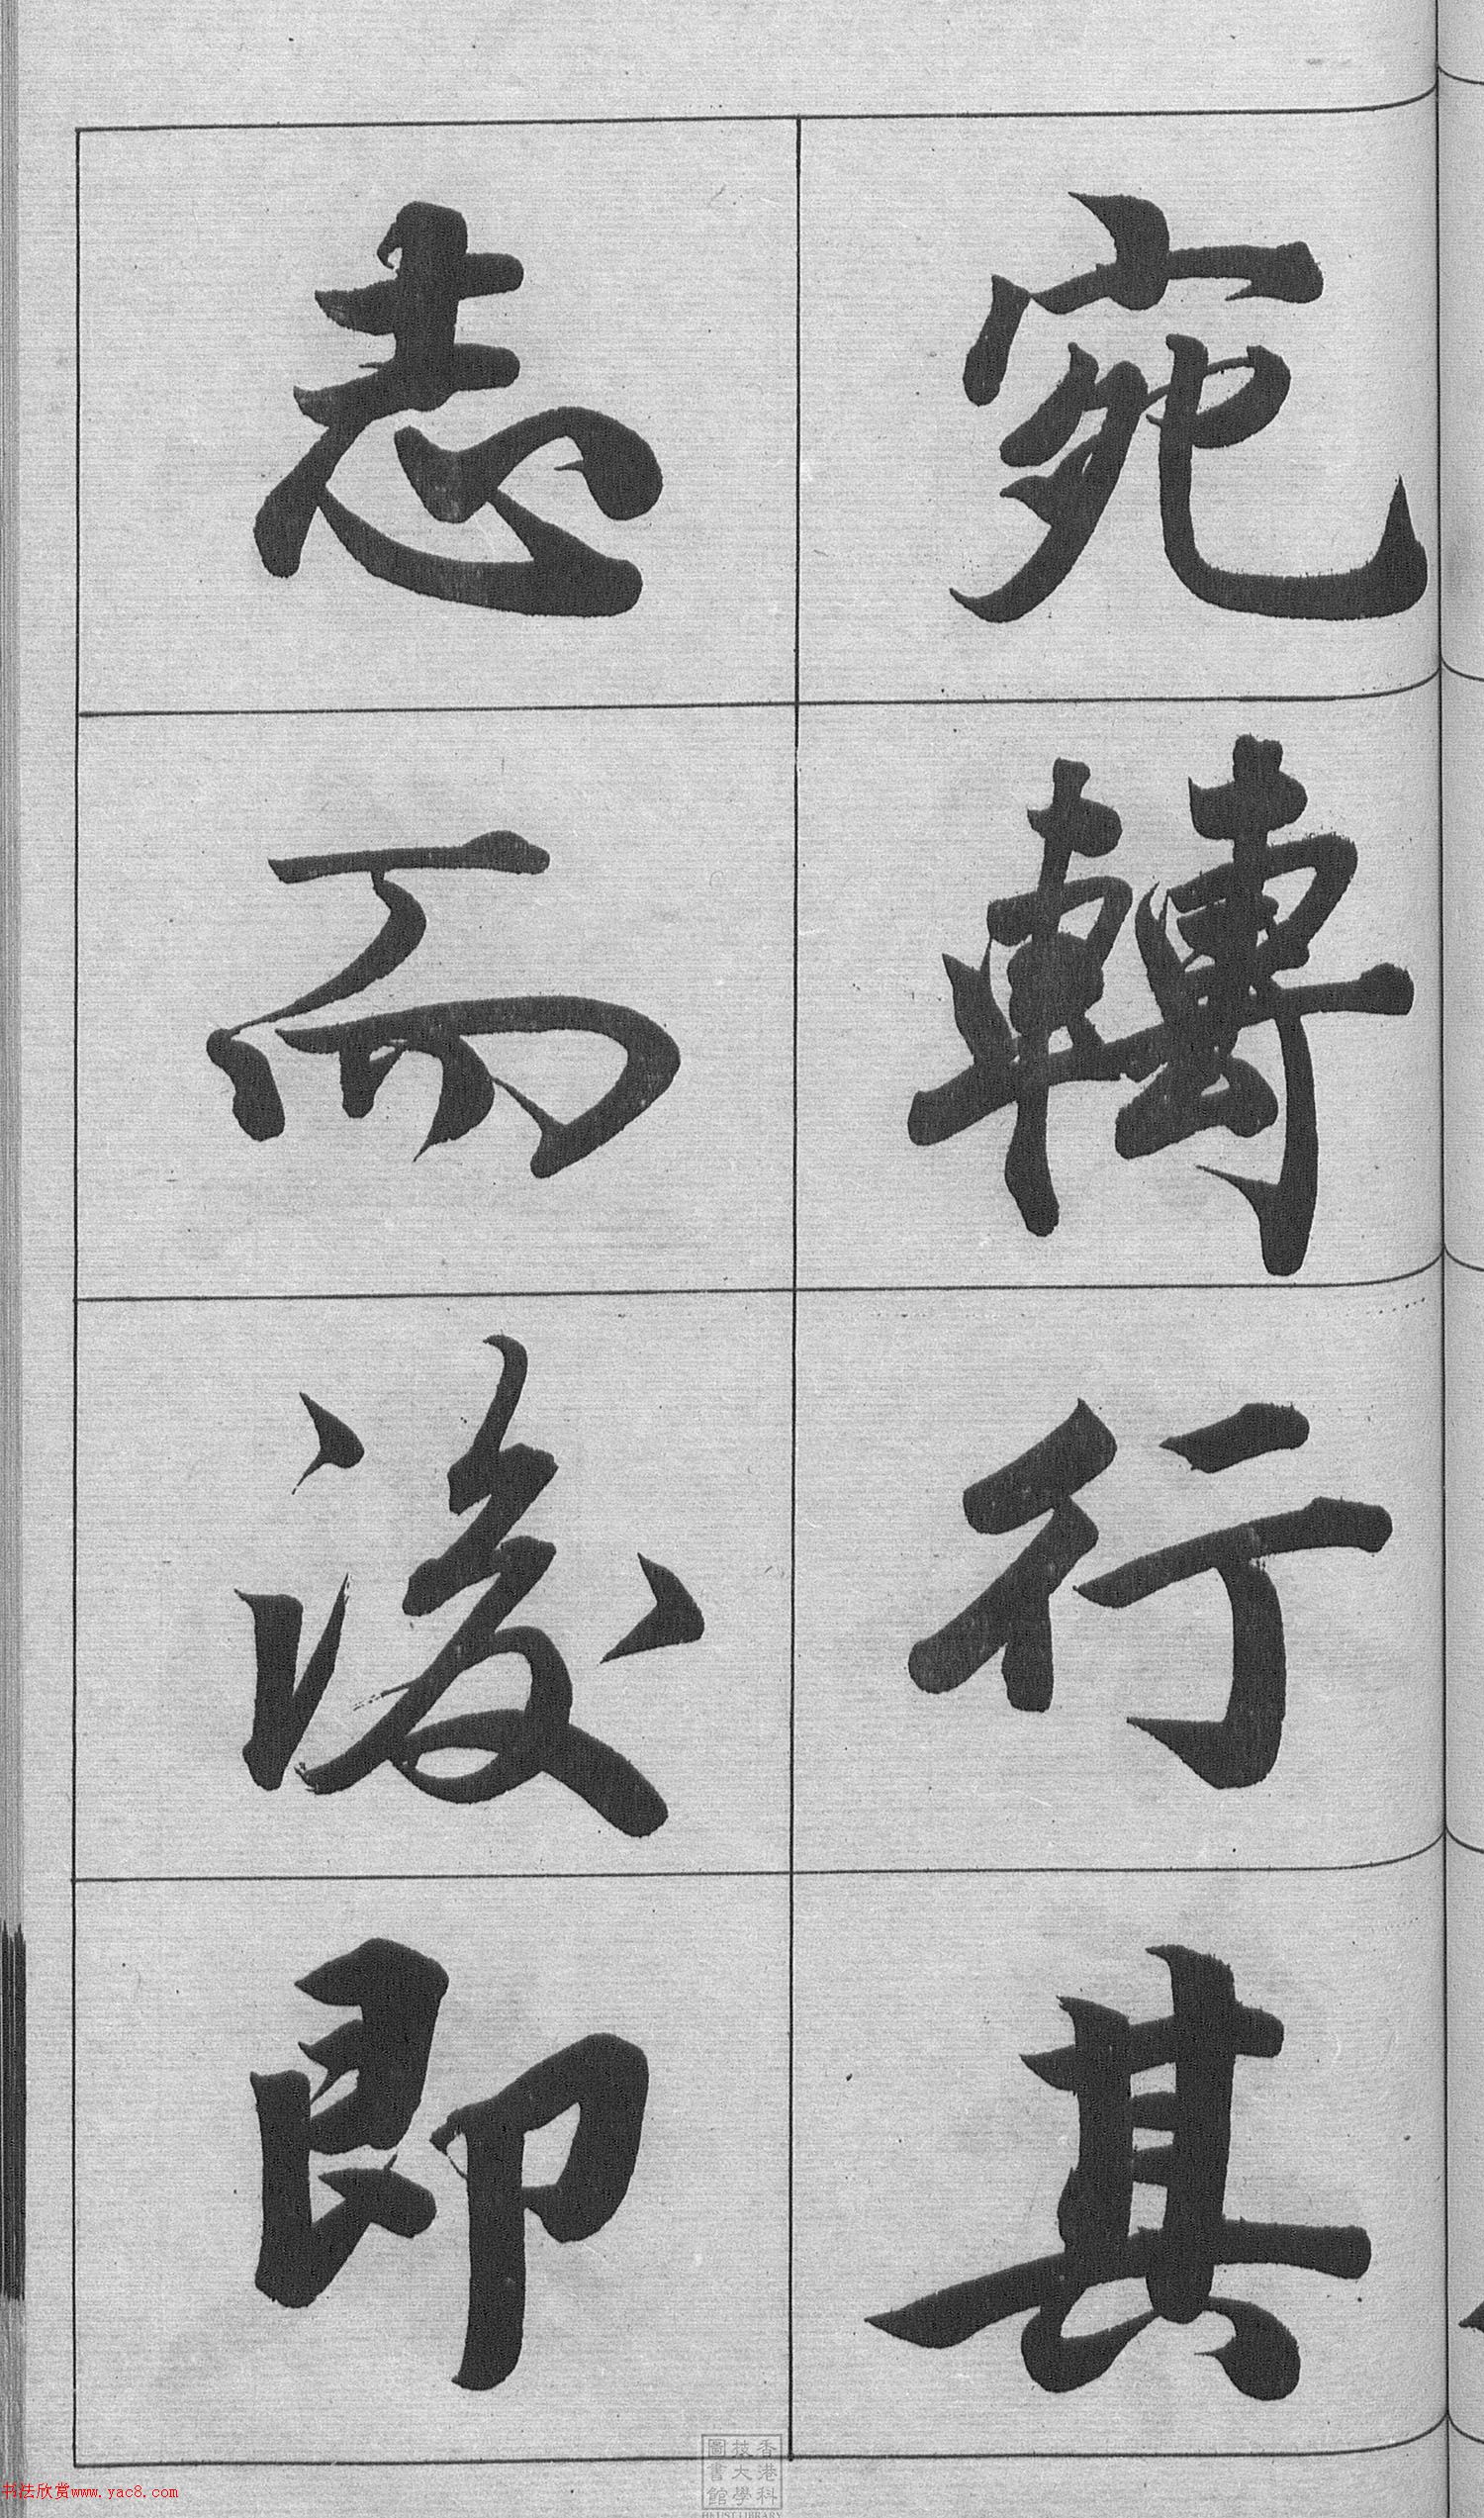 宛轉行其
志而後即
香港科
技大學
圖書館
HKUST LIBRARY
书法欣赏www.yac8.com